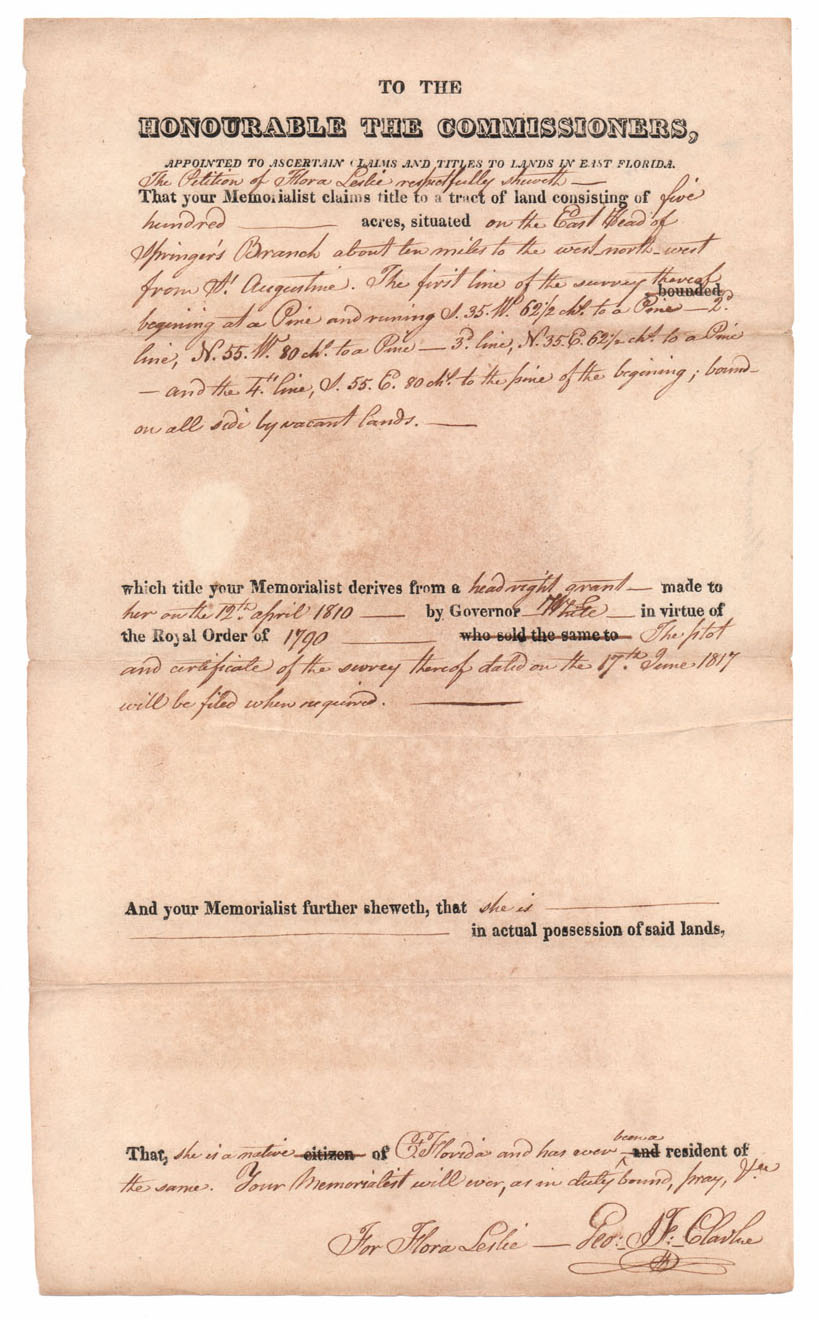 TO THE
HONOURABLE THE COMMISSIONERS,
APPOINTED TO ASCERTAIN CLAIMS AND TITLES TO LANDS IN EAST FLORIDA.
The Petition of Flora Leslie respectfully sheweth —
That your Memorialist claims title to a tract of land consisting of five
hundred — acres, situated on the East Head of
Springer's Branch about ten miles to the west-north-west
from St Augustine. The first line of the survey thereof
bounded
begining at a Pine and runing S. 35. W. 62 1/2 chs. to a Pine — 2d
line, N. 55. W. 80 chs. to a Pine — 3d. line, N. 35. E. 62 1/2 chs. to a Pine
— and the 4th. line, S. 55. E. 80 chs. to the pine of the begining; bound-
on all side by vacant lands. —
which title your Memorialist derives from a headright grant — made to
her on the 12th. april 1810 — by Governor White — in virtue of
the Royal Order of 1790 — who sold the same to The plot
and certificate of the survey thereof dated on the 17th. June 1817
will be filed when required. —
And your Memorialist further sheweth, that she is —
— in actual possession of said lands,
been a
That, she is a native citizen of E. Florida and has ever and resident of
the same. Your Memorialist will ever, as in duty bound, pray, &ca
For Flora Leslie — Geo: J. F: Clarke